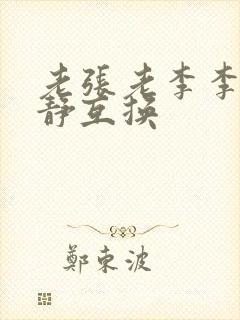 老張老李李
靜互換
鄭東波